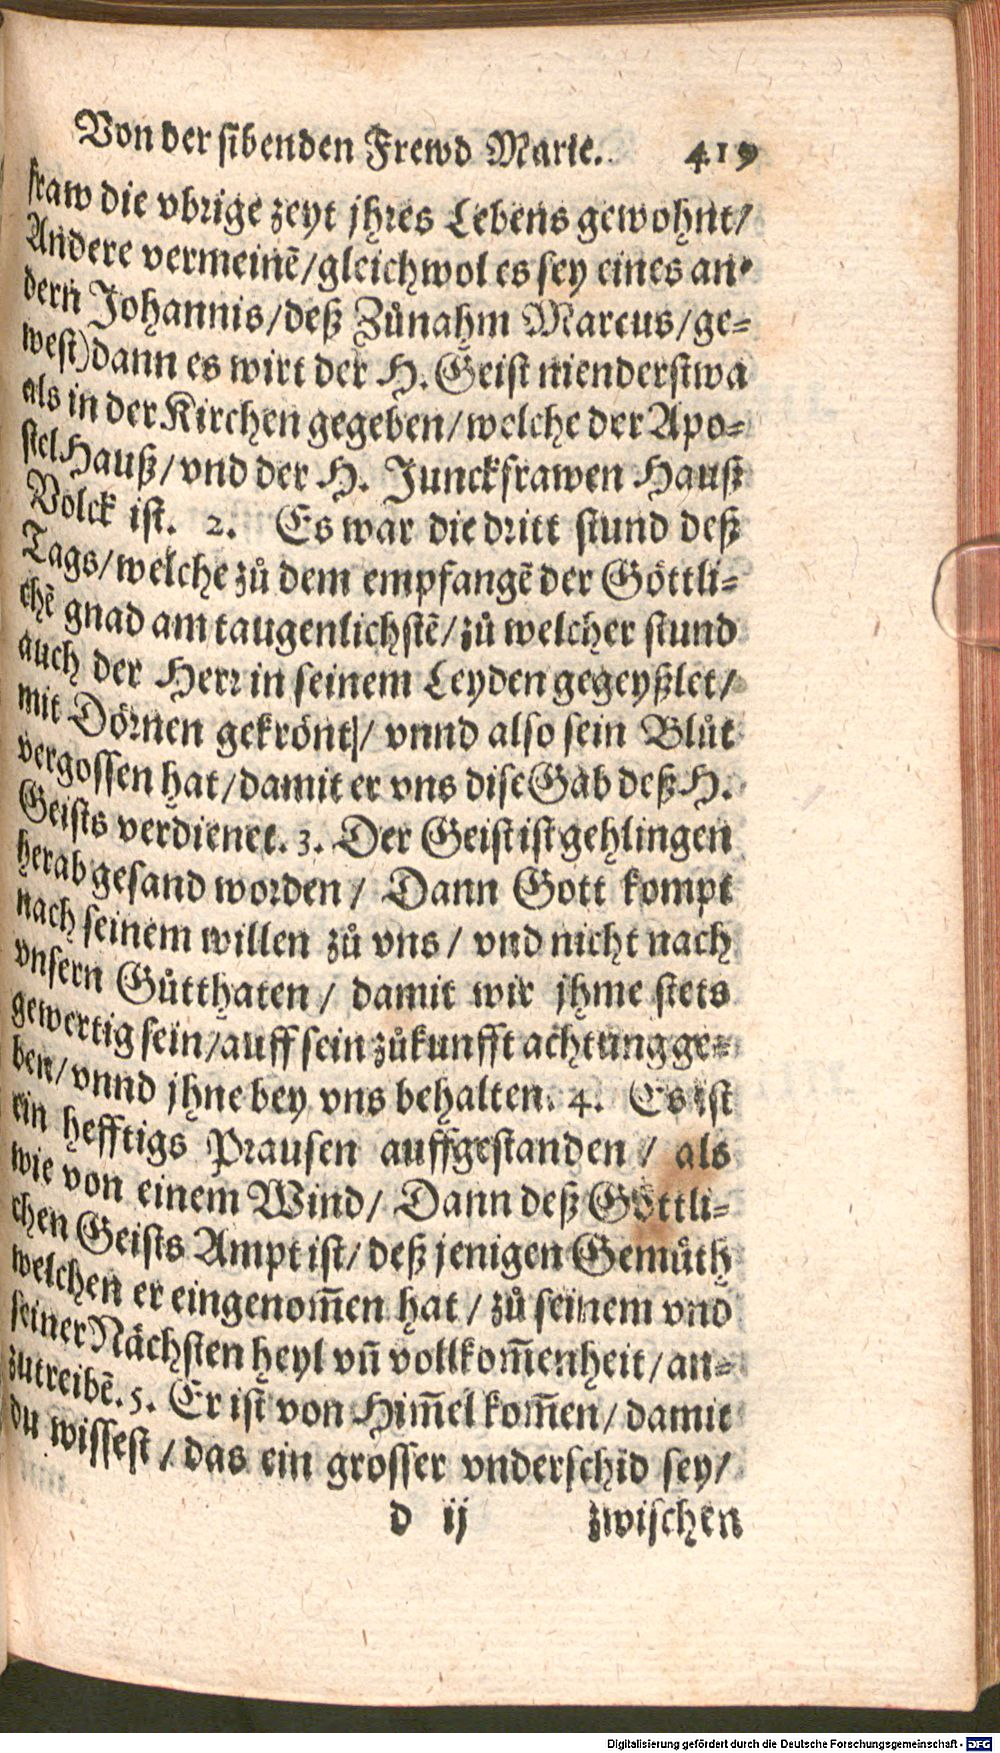 Von der sibenden Frewd Marie. 419
fraw die vbrige zeyt jhres Lebens gewohnt/
Andere vermeinē/gleichwol es sey eines an-
dern Johannis/deß Zůnahm Marcus/ge-
west) dann es wirt der H. Geist nienderstwa
als in der Kirchen gegeben/welche der Apo-
stel Hauß/vnd der H. Junckfrawen Hauß
Volck ist. 2. Es war die dritt stund deß
Tags/welche zů dem empfangē der Göttli-
chē gnad am taugenlichstē/zů welcher stund
auch der Herr in seinem Leyden gegeyßlet/
mit Dörnen gekrönt/ vnnd also sein Blůt
vergossen hat/damit er vns dise Gab deß H.
Geists verdienet. 3. Der Geist ist gehlingen
herab gesand worden/ Dann Gott kompt
nach seinem willen zů vns/ vnd nicht nach
vnsern Gůtthaten/ damit wir jhme stets
gewertig sein/auff sein zůkunfft achtung ge-
ben/vnnd jhne bey vns behalten. 4. Es ist
ein hefftigs Prausen auffgestanden/ als
wie von einem Wind/ Dann deß Göttli-
chen Geists Ampt ist/ deß jenigen Gemůth
welchen er eingenom̄en hat/ zů seinem vnd
seiner Nächsten heyl vn̄ vollkom̄enheit/an-
zutreibē. 5. Er ist von Him̄el kom̄en/ damit
du wissest/ das ein grosser vnderschid sey/
d ij zwischen
Digitalisierung gefördert durch die Deutsche Forschungsgemeinschaft - DFG